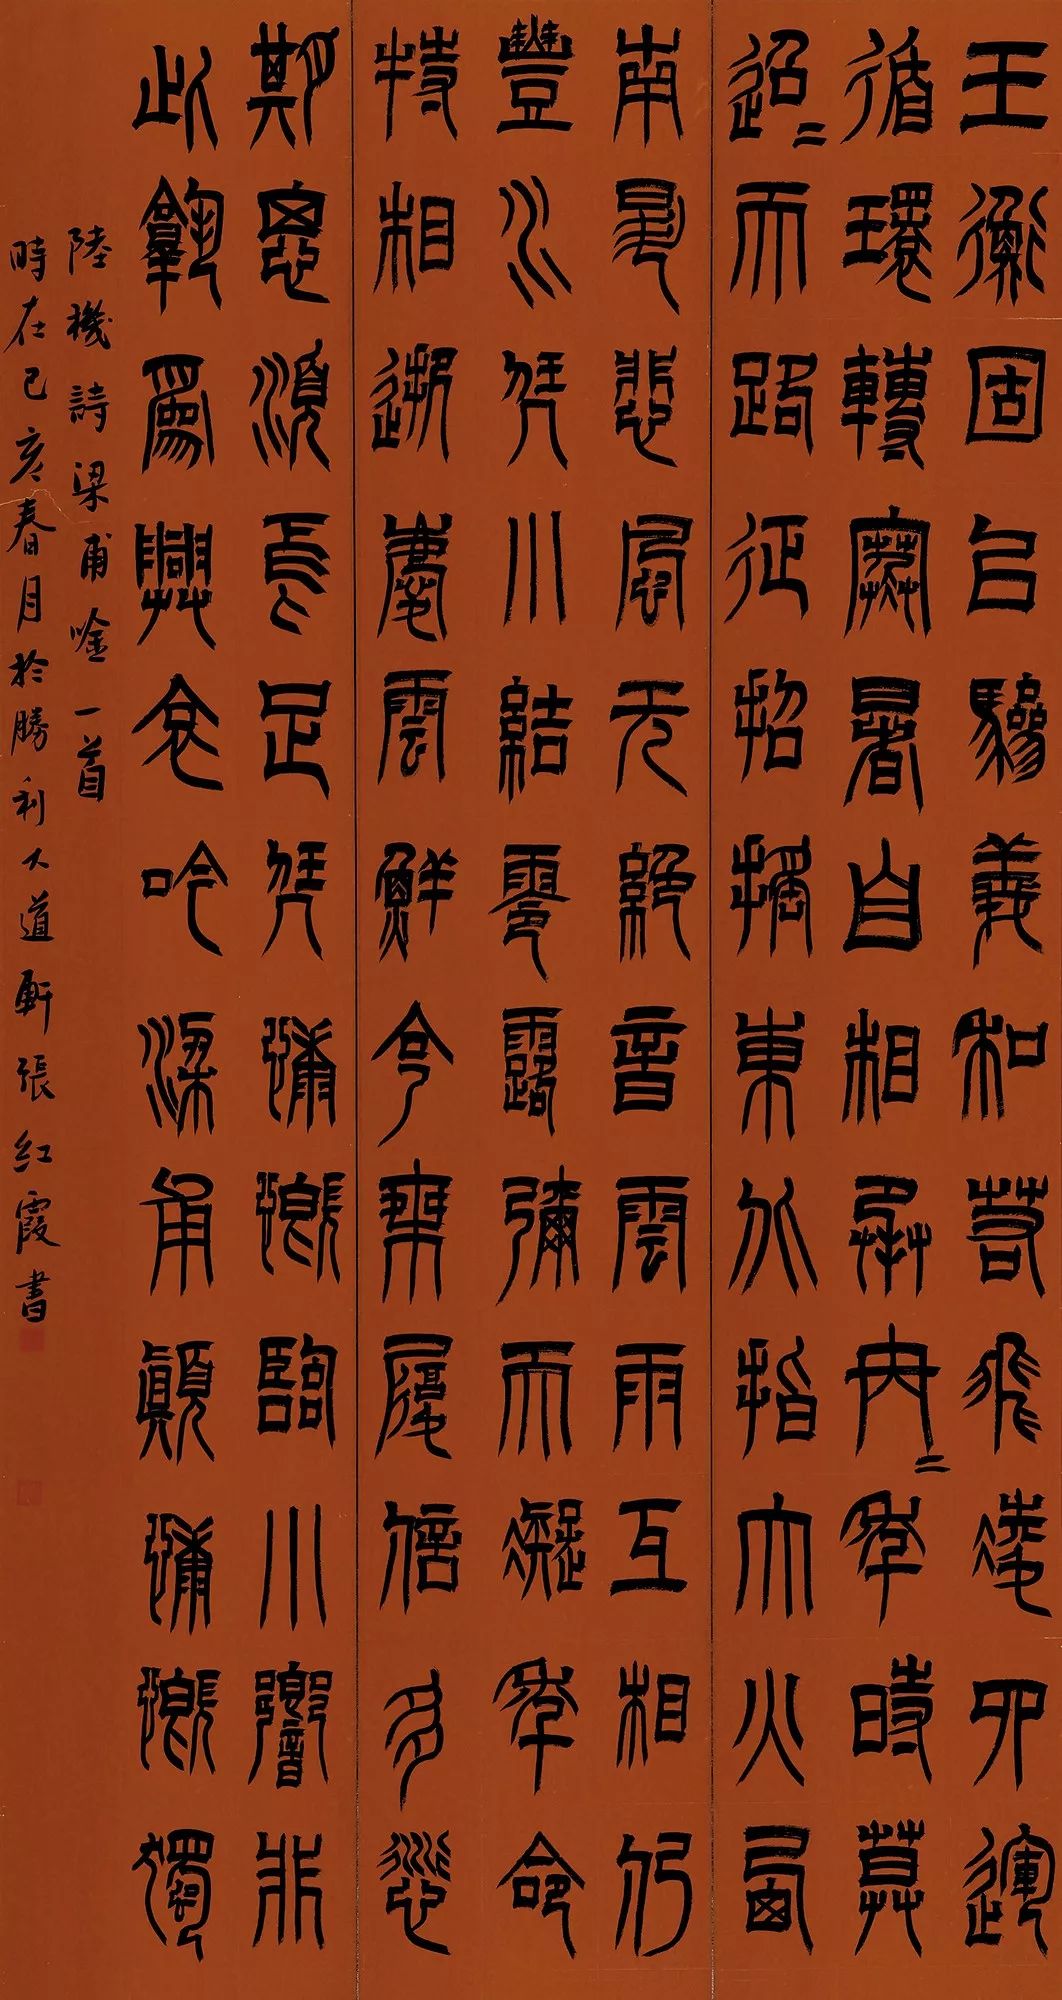 玉衡固已驂義和若飛凌四運
循環轉寒暑自相承冉〻年時暮
迢〻天路征招搖東北指大火西
南昇悲風无絕音雲雨互相仍
豐水凭川結零露彌天凝年命
特相逝慶雲鮮克乘履信多愆
期思順焉足凭慷慨臨川響非
此孰為興哀吟梁甫顛慷慨獨
陸機詩梁甫唫一首
時在己亥春月於勝利大道軒張红霞書